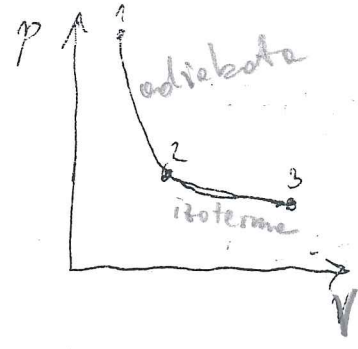 1
p
adiabata
2
3
izoterma
V